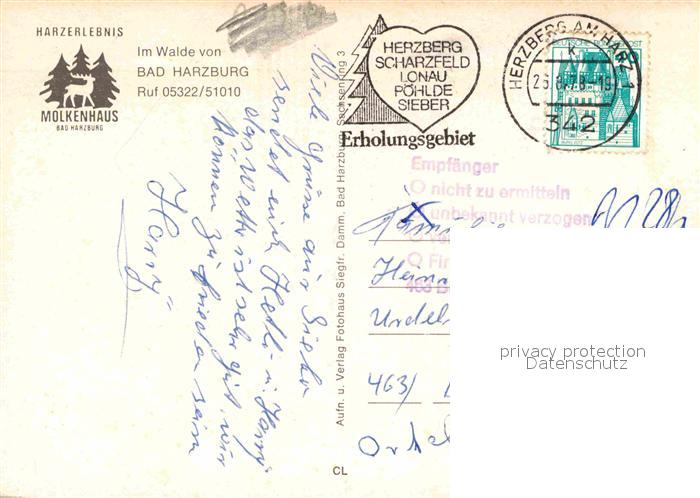 HARZERLEBNIS
MOLKENHAUS
BAD HARZBURG
Im Walde von
BAD HARZBURG
Ruf 05322/51010
HERZBERG
SCHARZFELD
LONAU
PÖHLDE
SIEBER
Erholungsgebiet
HERZBERG AM HARZ 1
k
26.8.78-19
342
DEUTSCHE BUNDESPOST
Empfänger
nicht zu ermitteln
unbekannt verzogen
Fir
463
Viele Grüße aus Sieber
sendet euch
das Wetter ist sehr gut, wir
können zufrieden sein
Harry
Aufn. u. Verlag Fotohaus Siegfr. Damm, Bad Harzburg, Sachsenring 3
CL
Familie
Urdel
463/
privacy protection
Datenschutz